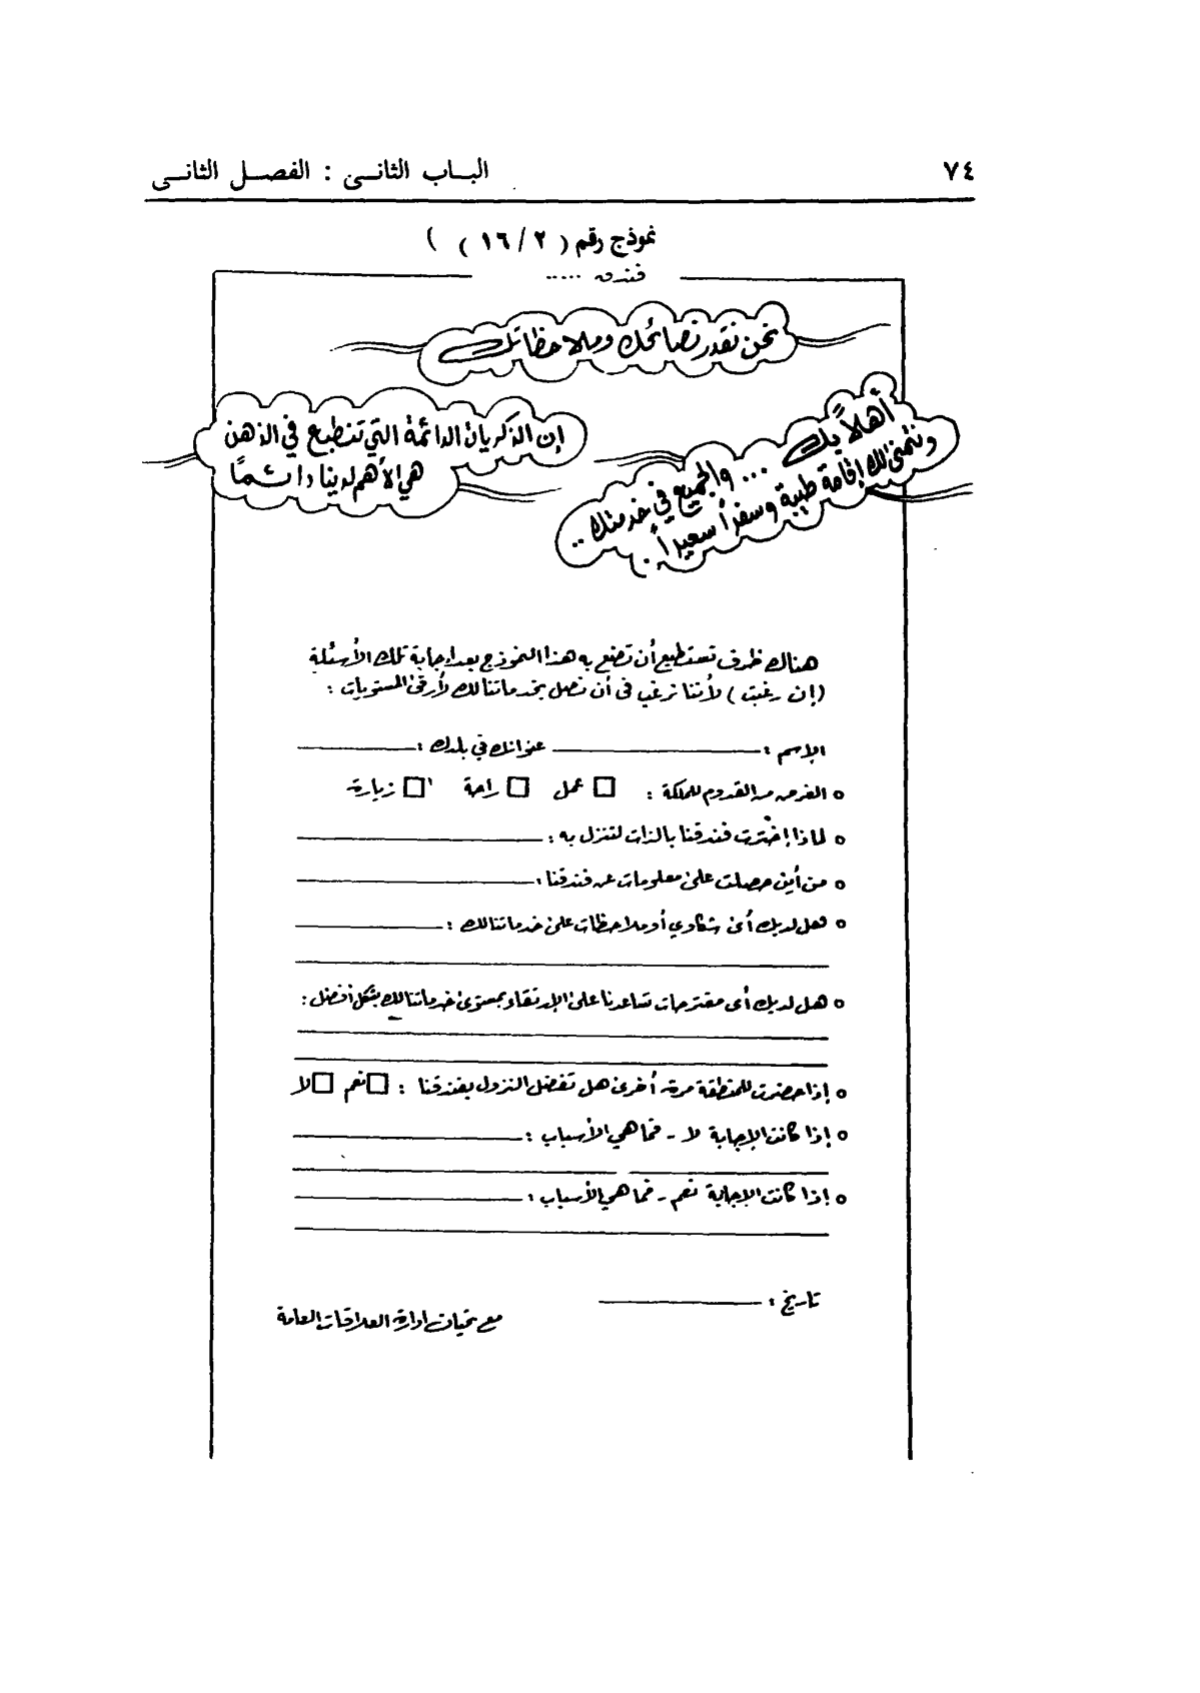 ٧٤
البـاب الثانـى : الفصـل الثانـى
نموذج رقم ( ٢ / ١٦ )
فندق .....
نحن نقدر نصائحك وملاحظاتك
أهلاً بك ... والجميع في خدمتك ..
ونتمنى لك إقامة طيبة وسفراً سعيداً .
إن الذكريات الدائمة التي تنطبع في الذهن
هي الأهم لدينا دائماً
هناك ظرف تستطيع أن تضع به هذا النموذج بعد إجابة تلك الأسئلة
(إن رغبت ) لأننا نرغب فى أن نصل بخدماتنا لك لأرقى المستويات :
الإسم : ــــــ عنوانك في بلدك : ــــــ
o الغرض من القدوم للمملكة : □ عمل □ راحة □ زيارة
o لماذا إخترت فندقنا بالذات لتنزل به : ــــــ
o من أين حصلت على معلومات عن فندقنا : ــــــ
o هل لديك أى شكاوي أو ملاحظات على خدماتنا لك : ــــــ
o هل لديك أى مقترحات تساعدنا على الإرتقاء بمستوى خدماتنا لك بشكل أفضل :
o إذا حضرت للمنطقة مرة أخرى هل تفضل النزول بفندقنا : □ نعم □ لا
o إذا كانت الإجابة لا - فما هي الأسباب : ــــــ
o إذا كانت الإجابة نعم - فما هي الأسباب : ــــــ
تاريخ : ــــــ
مع تحيات إدارة العلاقات العامة